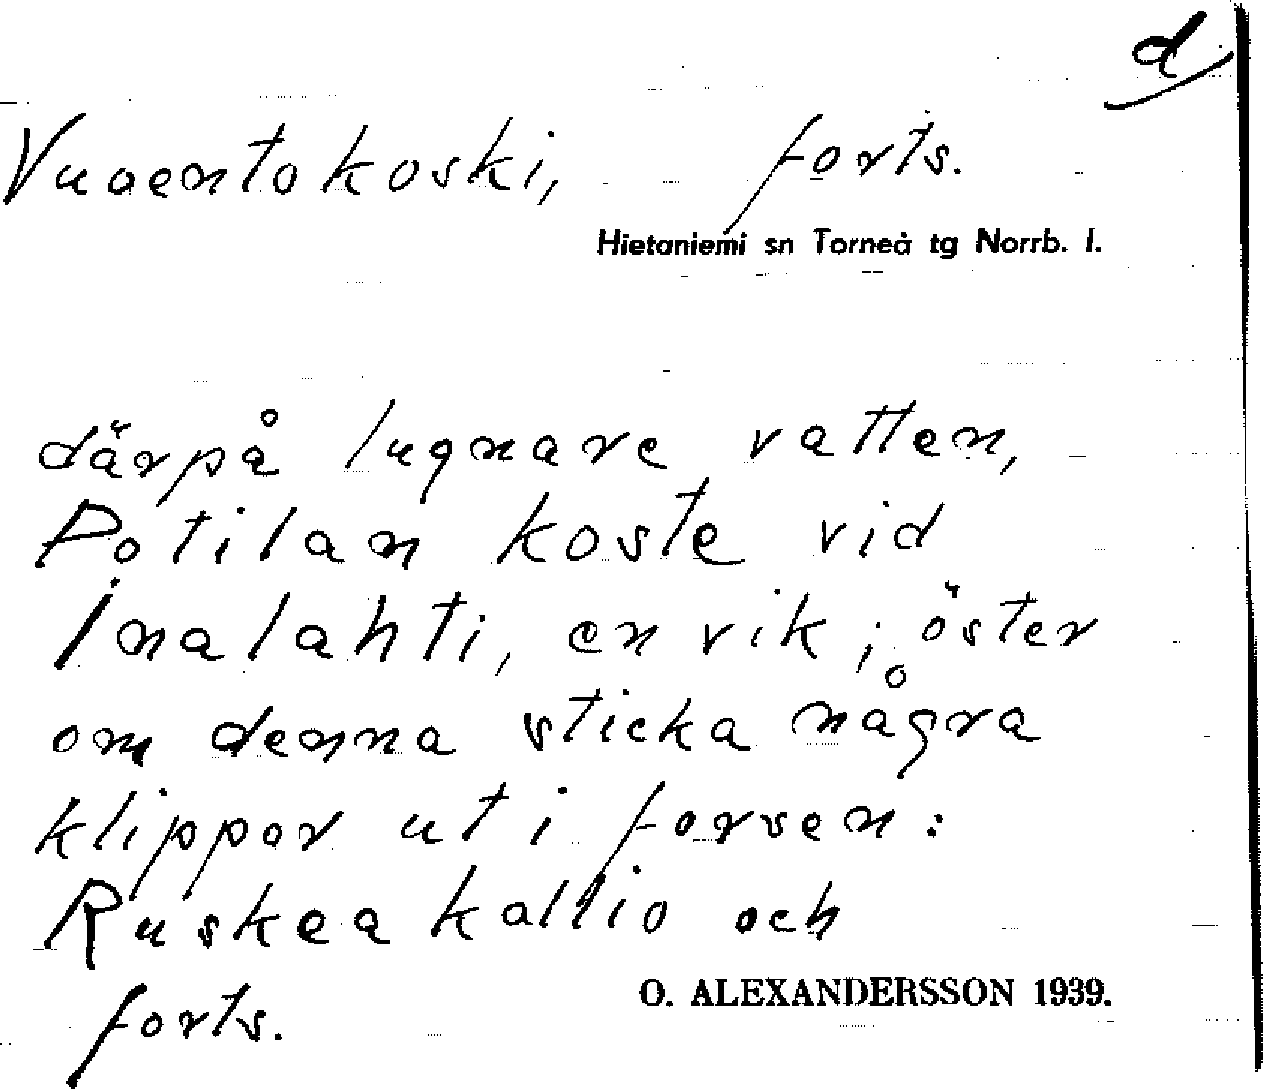 d
Vuoentokoski, forts.
Hietaniemi sn Torneå tg Norrb. l.
därpå lugnare vatten,
Potilan koste vid
Inalahti, en vik; öster
om denna sticka några
klippor ut i forsen:
Ruskea kallio och
forts.
O. ALEXANDERSSON 1939.